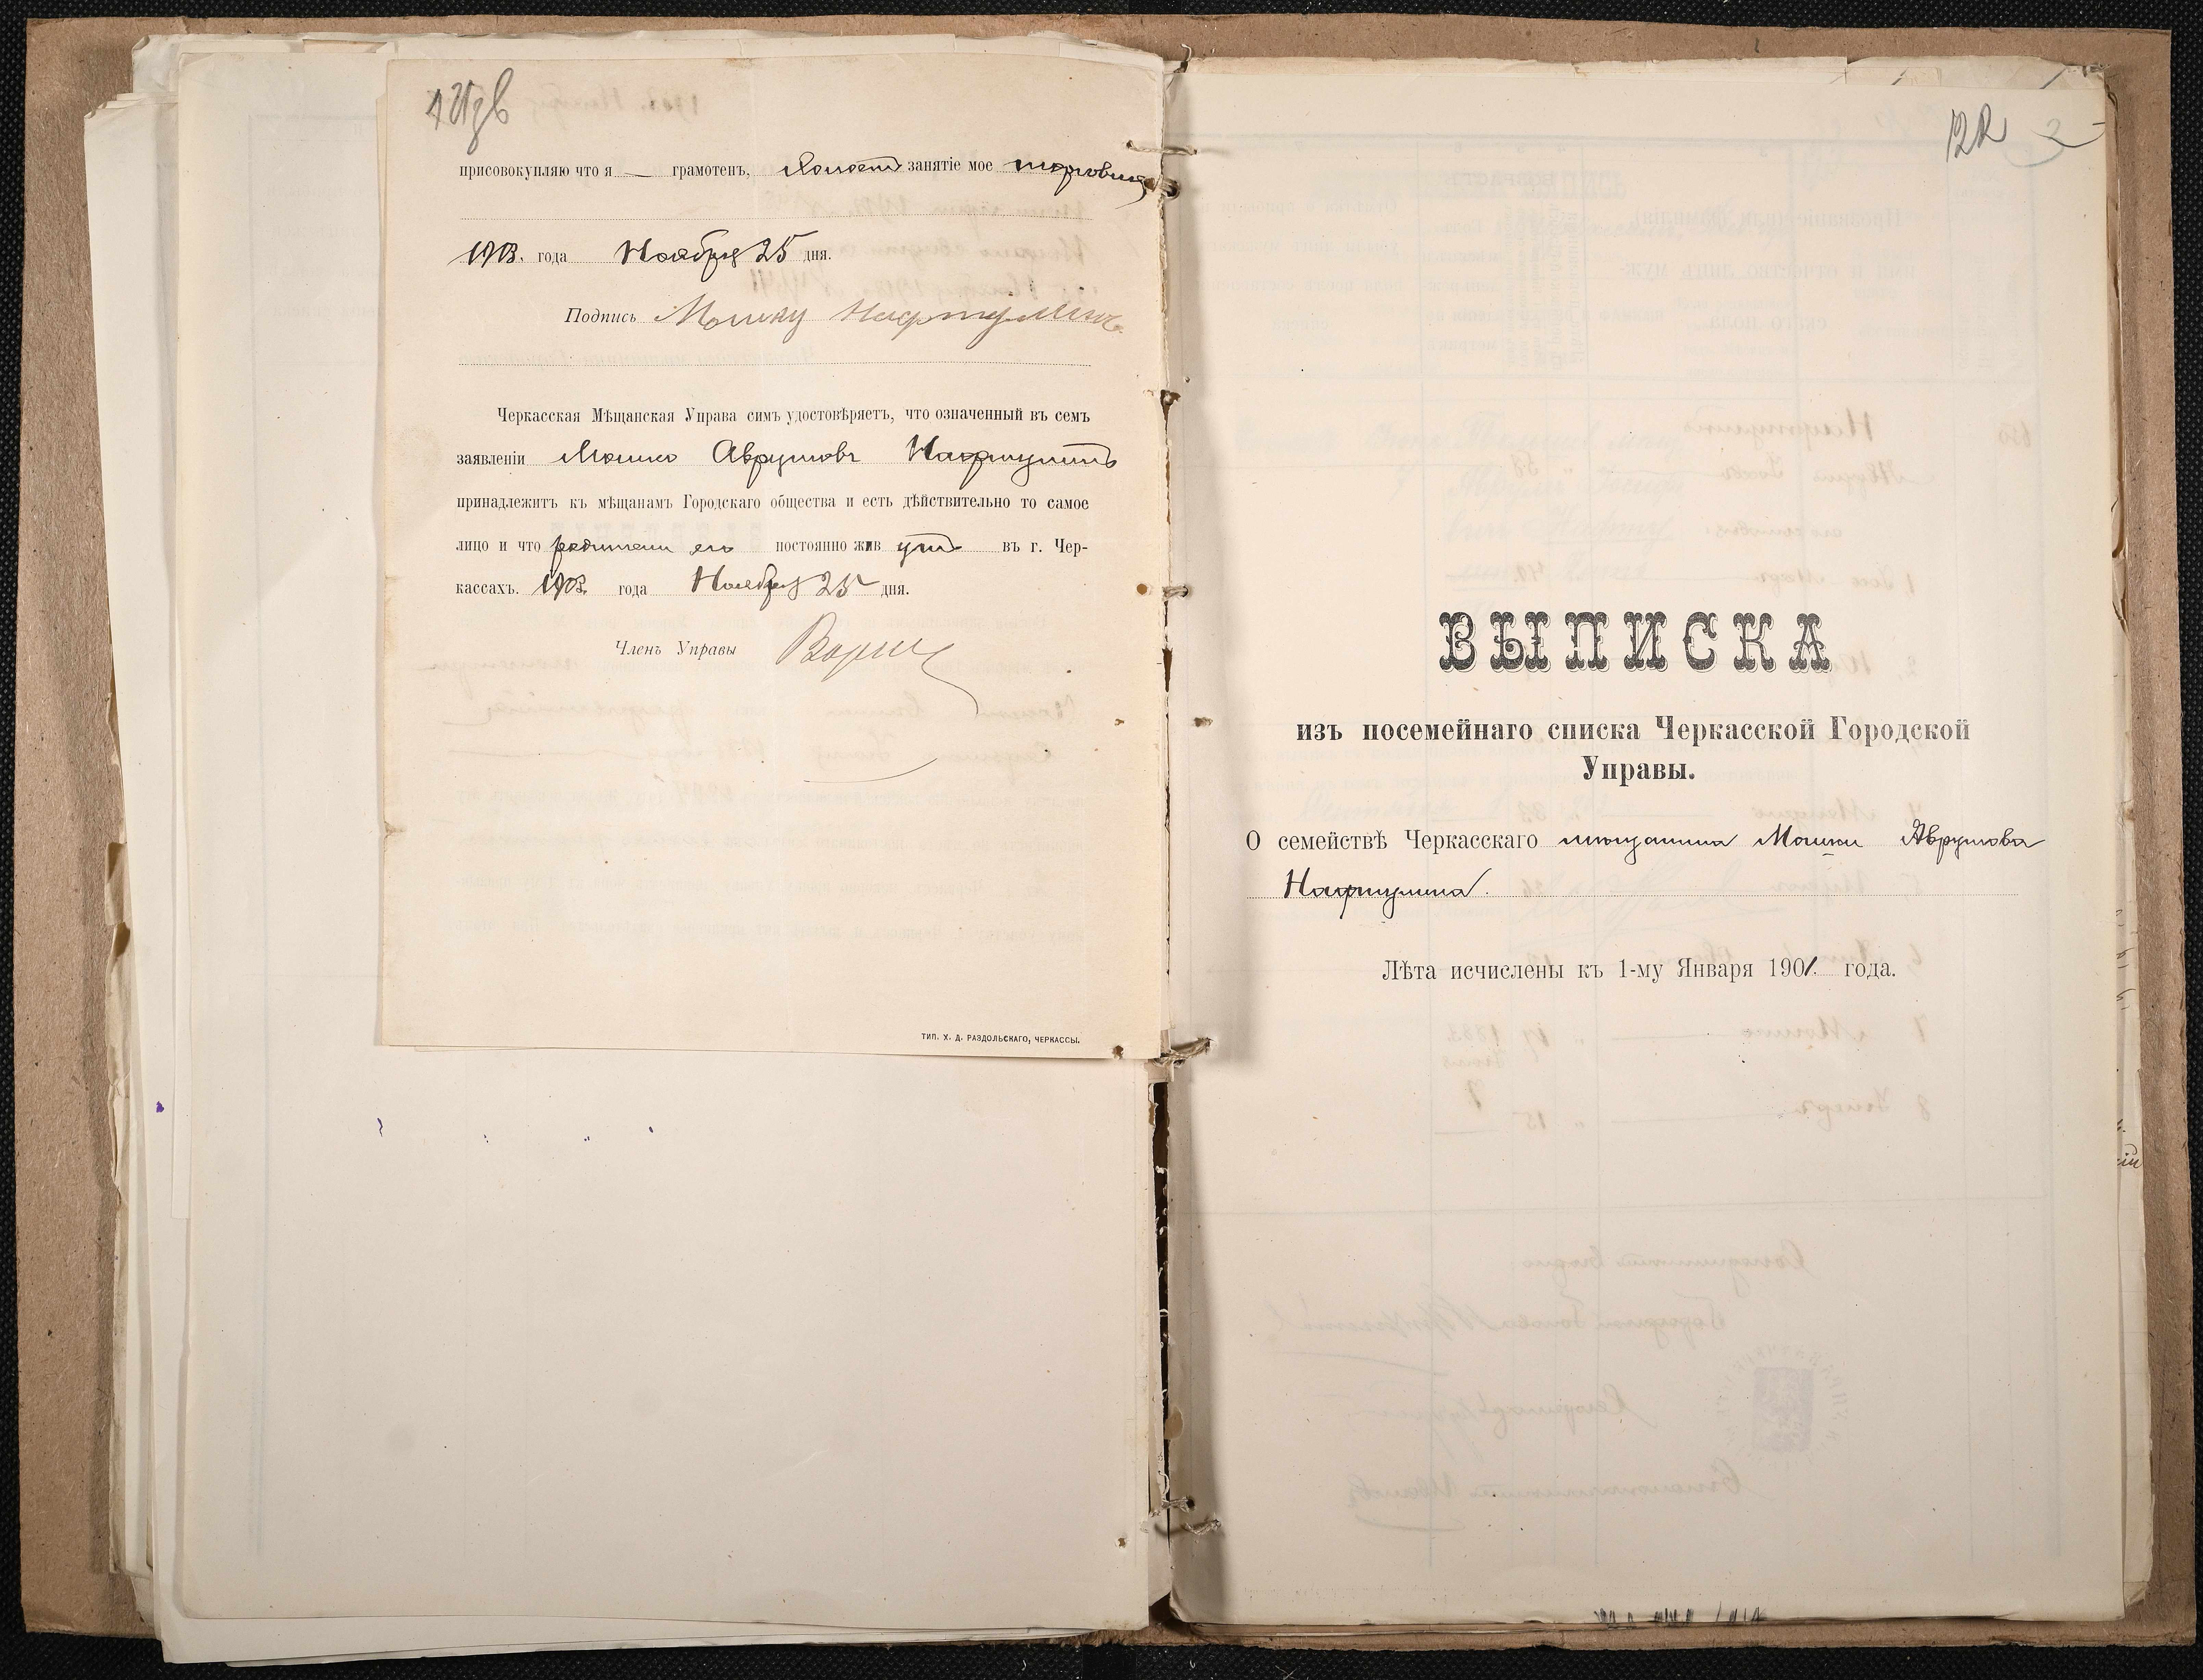 присовокупляю что я — грамотенъ, холостъ занятіе мое торговця
1903. года Ноября 25 дня.
Подпись Мошку Нафтулінъ
Черкасская Мѣщанская Управа симъ удостовѣряетъ, что означенный въ семъ
заявленіи Мошко Аврумовъ Нафтулинъ
принадлежитъ къ мѣщанамъ Городскаго общества и есть дѣйствительно то самое
лицо и что родители его постоянно жив утъ въ г. Чер-
кассахъ. 1903. года Ноября 25 дня.
Членъ Управы
ТИП. Х. Д. РАЗДОЛЬСКАГО, ЧЕРКАССЫ.
122
ВЫПИСКА
изъ посемейнаго списка Черкасской Городской
Управы.
О семействѣ Черкасскаго мѣщанина Мошки Аврумова
Нафтулина.
Лѣта исчислены къ 1-му Января 1901. года.